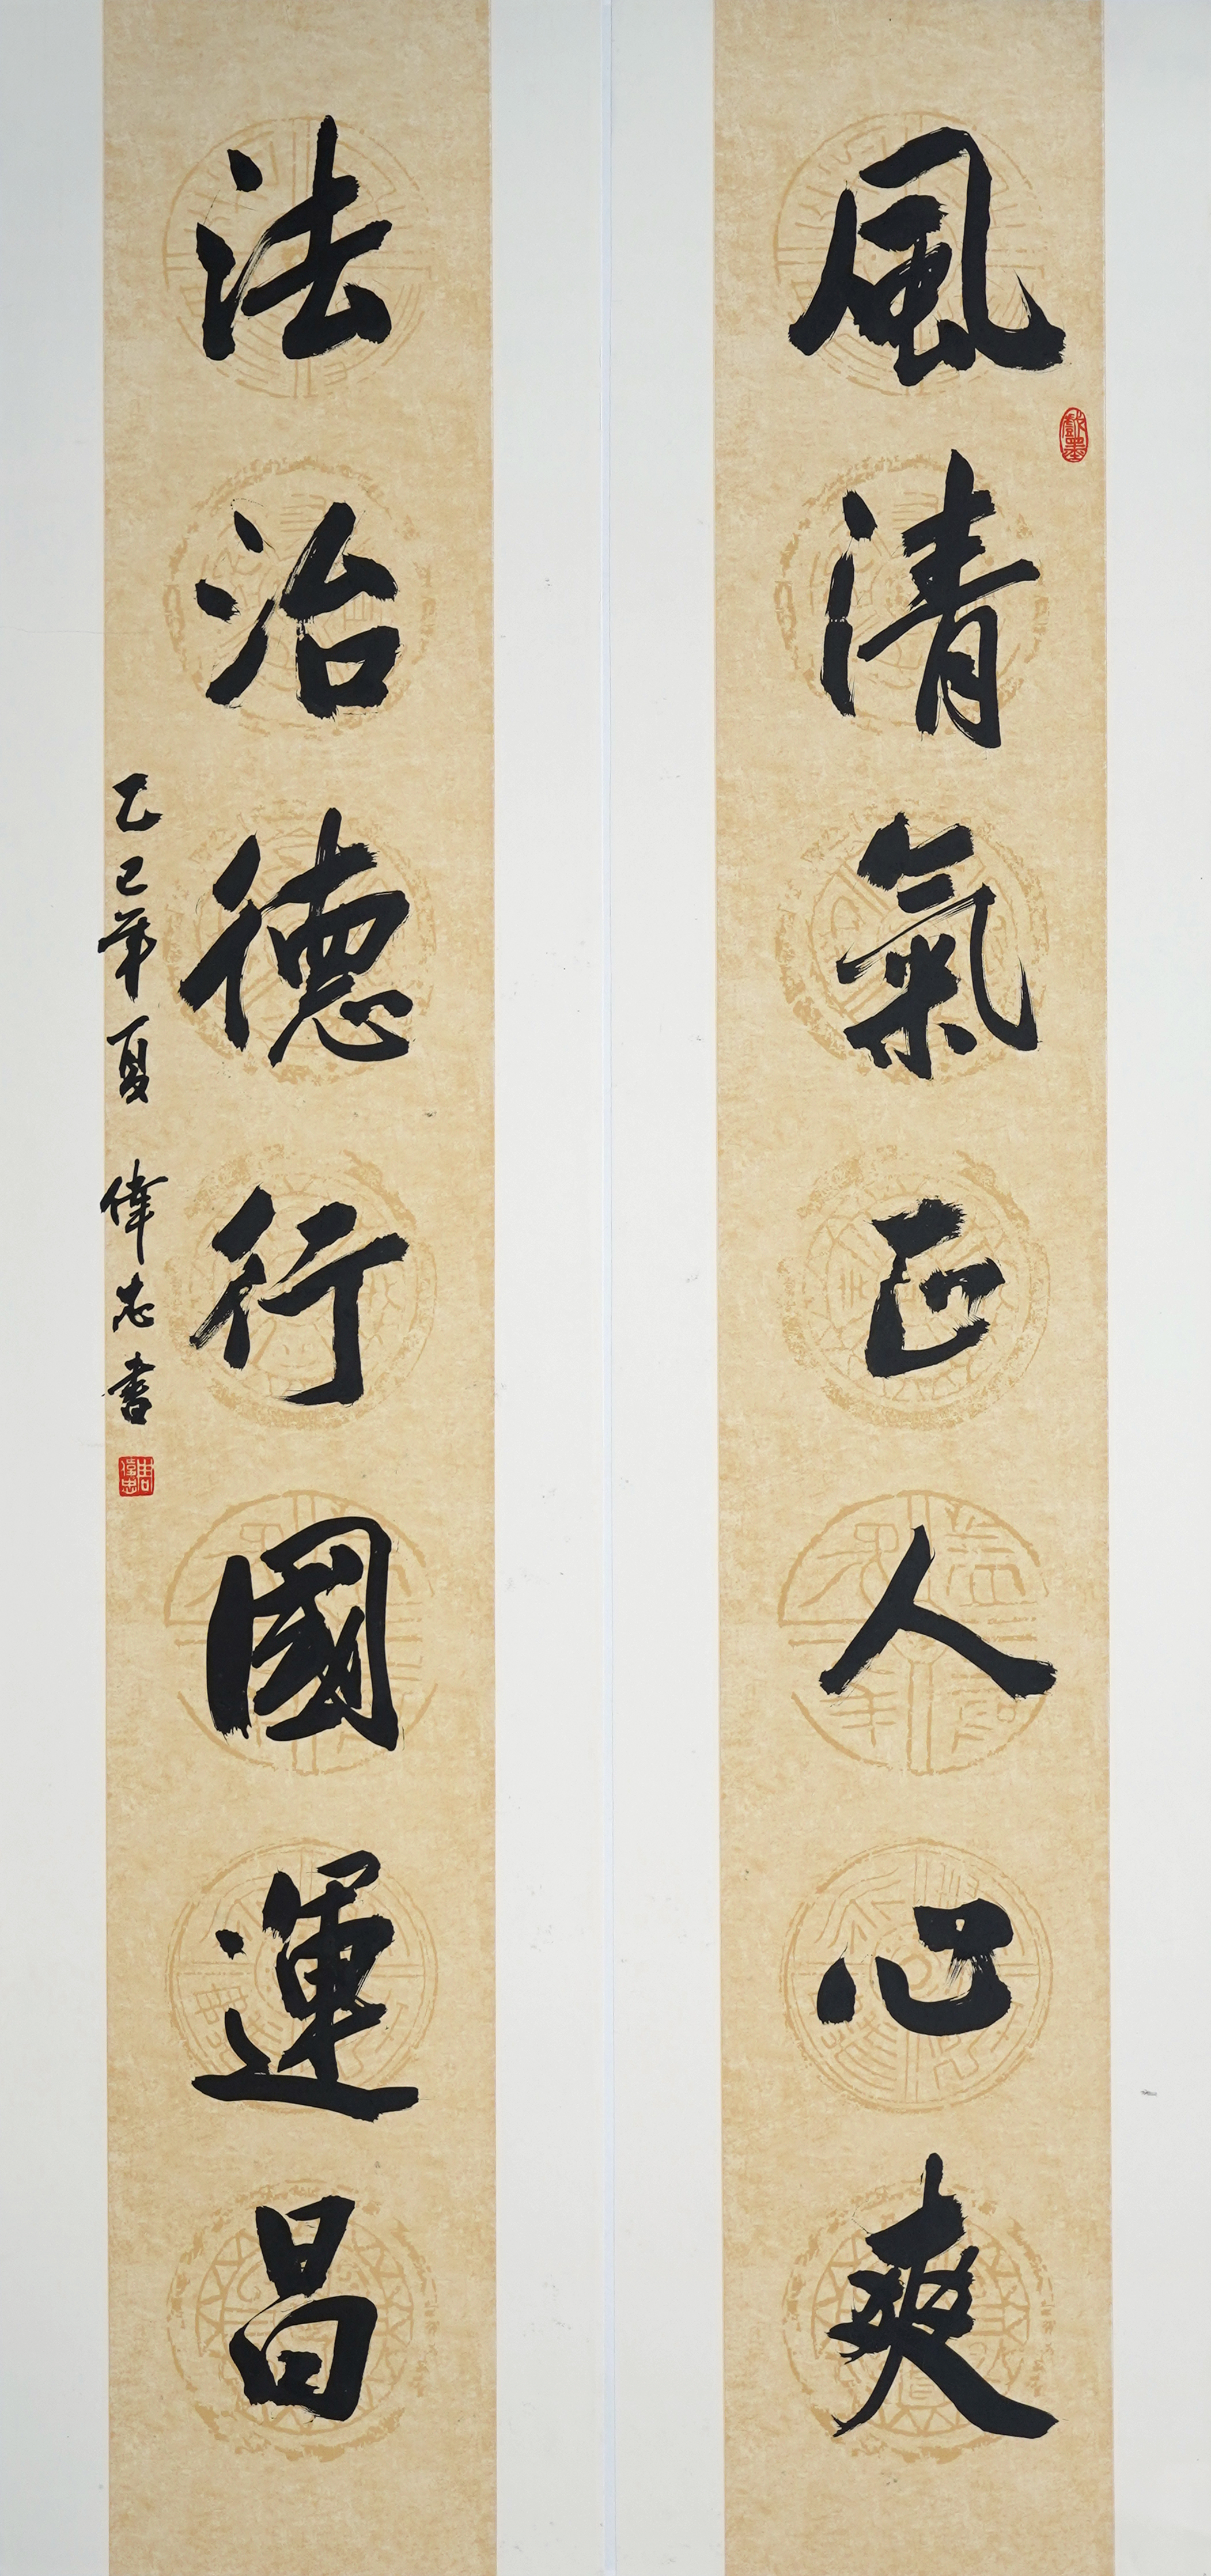 風清氣正人心爽
戲墨
法治德行國運昌
乙巳年夏 偉志書